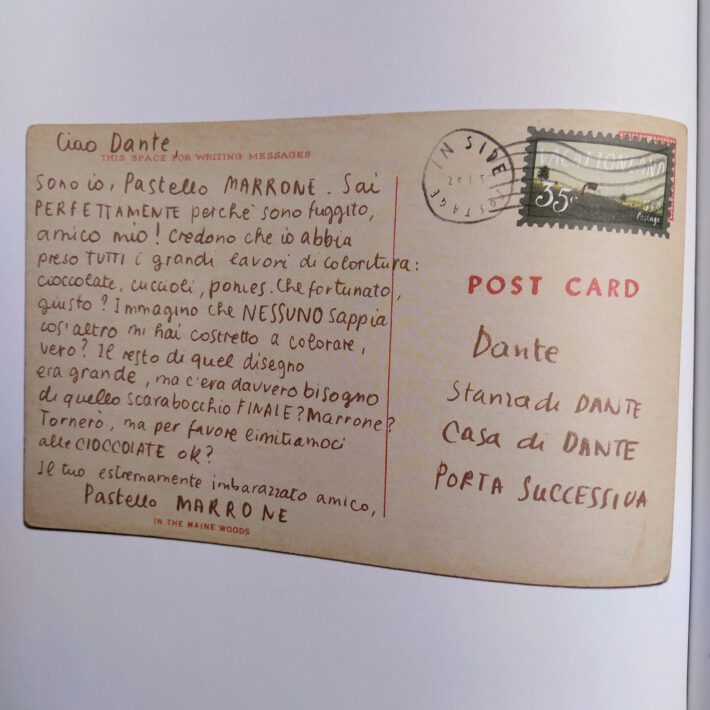 Ciao Dante,
THIS SPACE FOR WRITING MESSAGES
Sono io, Pastello MARRONE. Sai
PERFETTAMENTE perchè sono fuggito,
amico mio! Credono che io abbia
preso TUTTI i grandi lavori di coloritura:
cioccolate, cuccioli, ponies. Che fortunato,
giusto? Immagino che NESSUNO sappia
cos'altro mi hai costretto a colorare,
vero? Il resto di quel disegno
era grande, ma c'era davvero bisogno
di quello scarabocchio FINALE? Marrone?
Tornerò, ma per favore limitiamoci
alle CIOCCOLATE ok?
Il tuo estremamente imbarazzato amico,
Pastello MARRONE
IN THE MAINE WOODS
IN SIDE
POSTAGE
VACATIONLAND
35c
Postage
POST CARD
Dante
Stanza di DANTE
Casa di DANTE
PORTA SUCCESSIVA